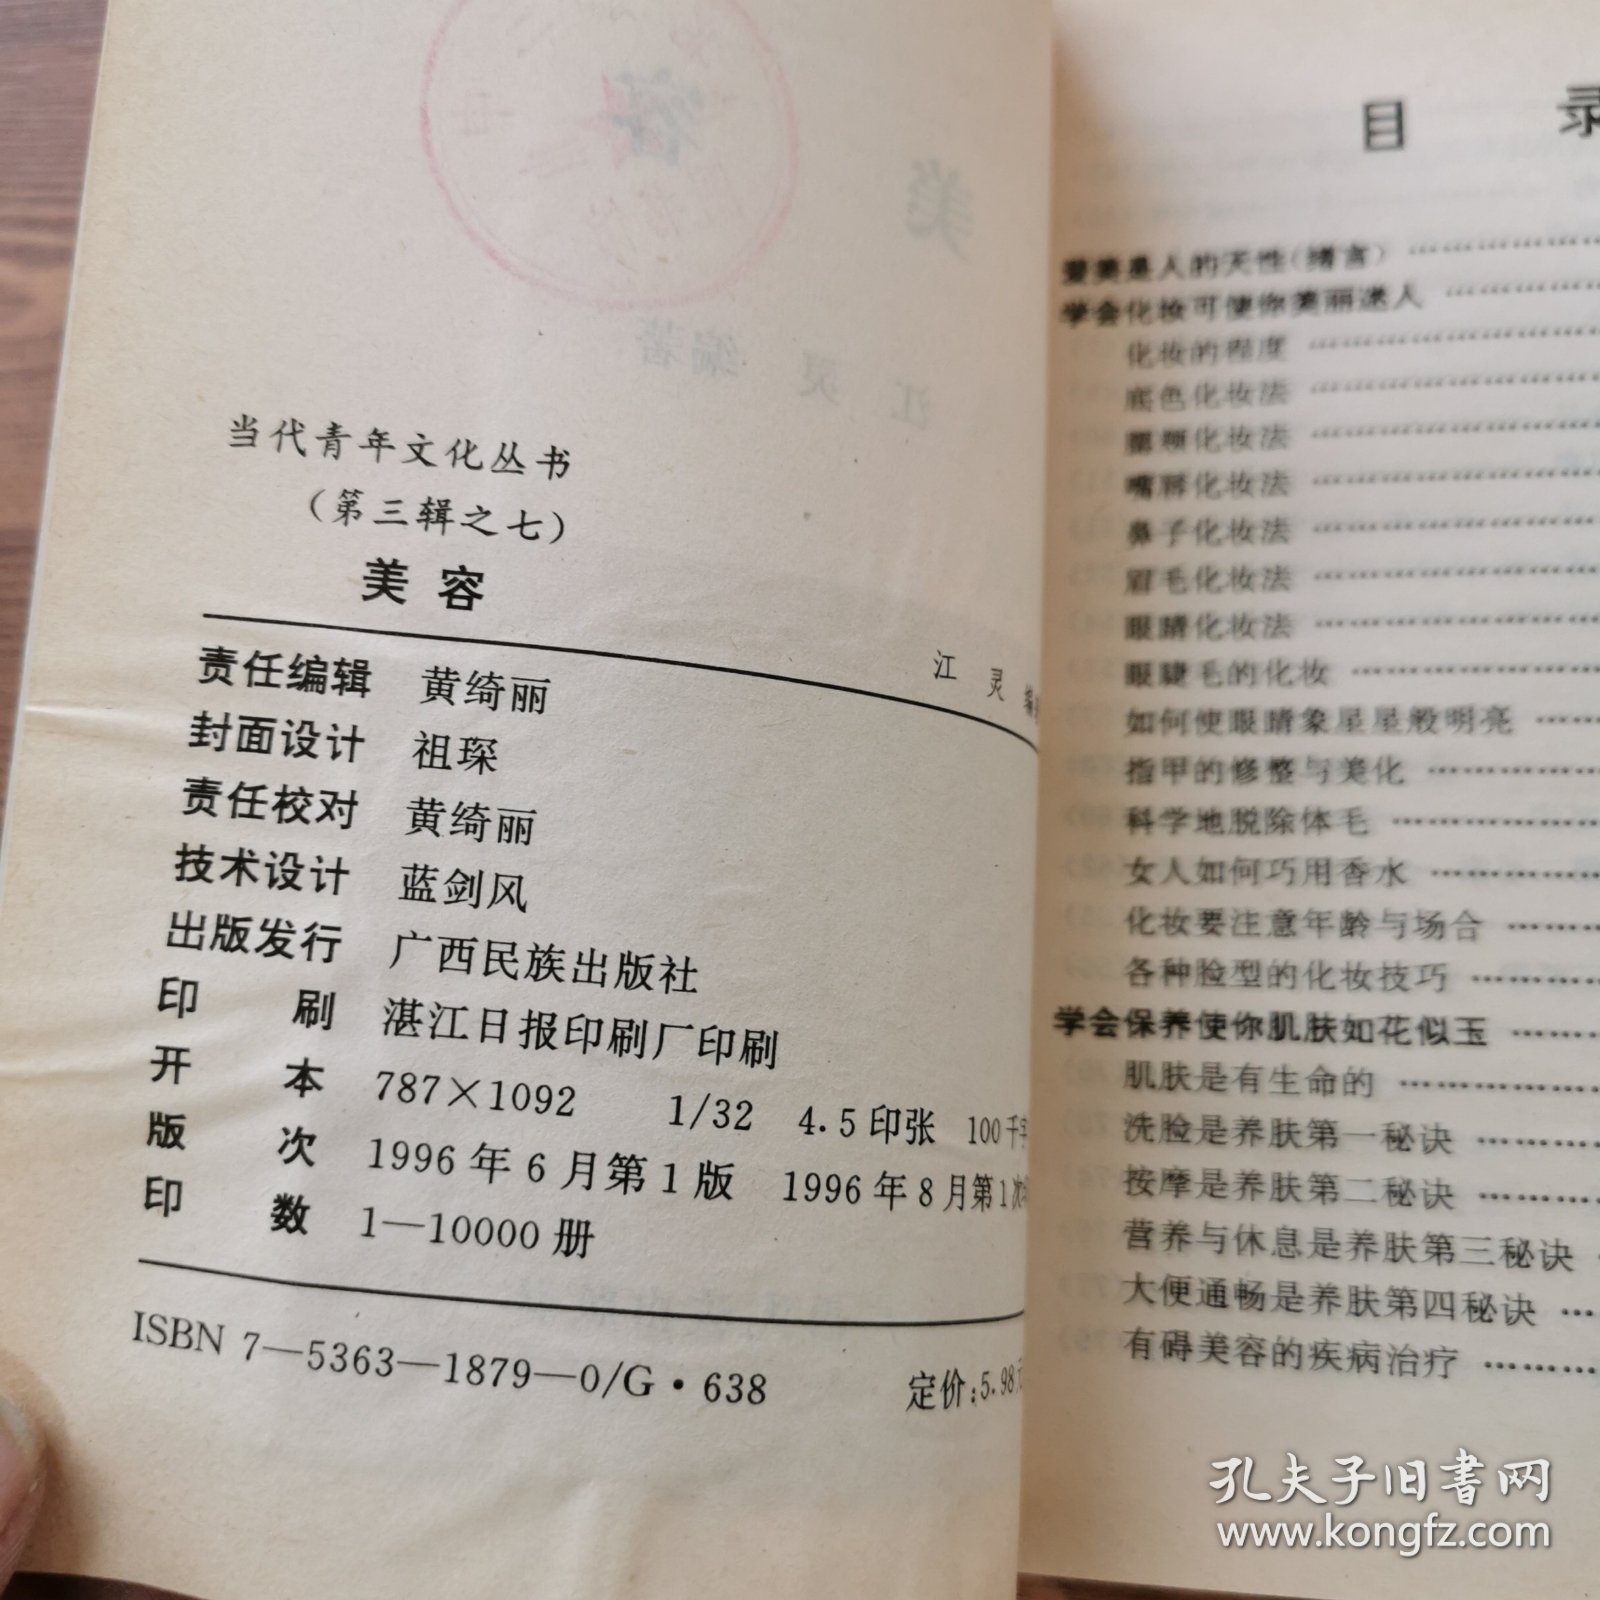 当代青年文化丛书
（第三辑之七）
美容
江 灵
责任编辑 黄绮丽
封面设计 祖琛
责任校对 黄绮丽
技术设计 蓝剑风
出版发行 广西民族出版社
印 刷 湛江日报印刷厂印刷
开 本 787×1092 1/32 4.5印张 100千字
版 次 1996年6月第1版 1996年8月第1次
印 数 1—10000册
ISBN 7—5363—1879—0/G·638
定价:5.98元
目 录
爱美是人的天性(绪言)
学会化妆可使你美丽迷人
化妆的程度
底色化妆法
腮颊化妆法
嘴唇化妆法
鼻子化妆法
眉毛化妆法
眼睛化妆法
眼睫毛的化妆
如何使眼睛象星星般明亮
指甲的修整与美化
科学地脱除体毛
女人如何巧用香水
化妆要注意年龄与场合
各种脸型的化妆技巧
学会保养使你肌肤如花似玉
肌肤是有生命的
洗脸是养肤第一秘诀
按摩是养肤第二秘诀
营养与休息是养肤第三秘诀
大便通畅是养肤第四秘诀
有碍美容的疾病治疗
孔夫子旧书网
www.kongfz.com